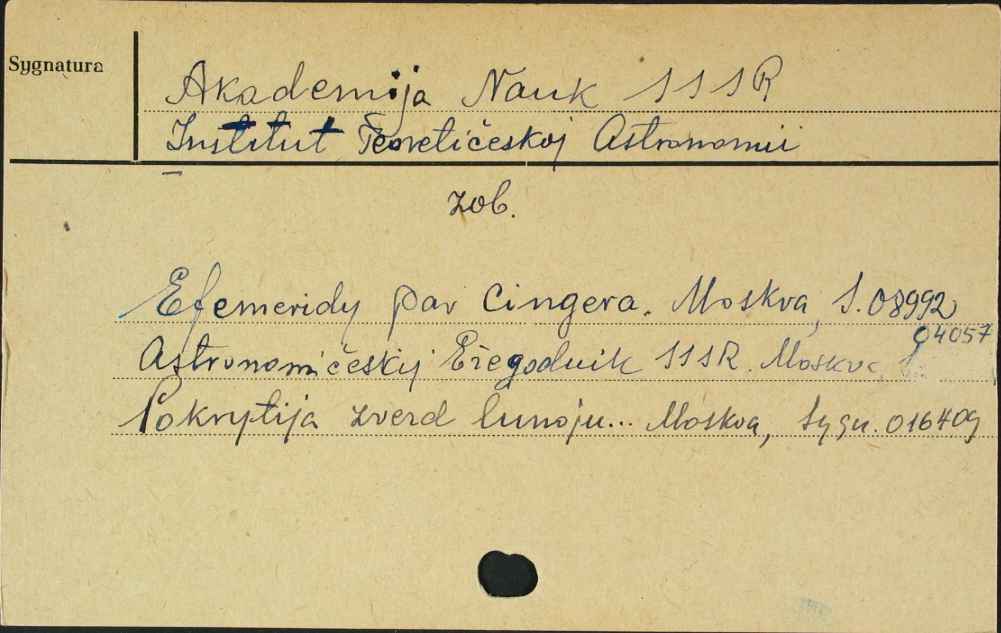 Sygnatura
Akademija Nauk SSSR
Institut Teoretičeskoj Astronomii
zob.
Efemeridy par Cingera. Moskva, S. 08992
04057
Astronomičeskij Ežegodnik SSSR. Moskva, S.
Pokrytija zverd lunoju... Moskva, Sygn. 016409